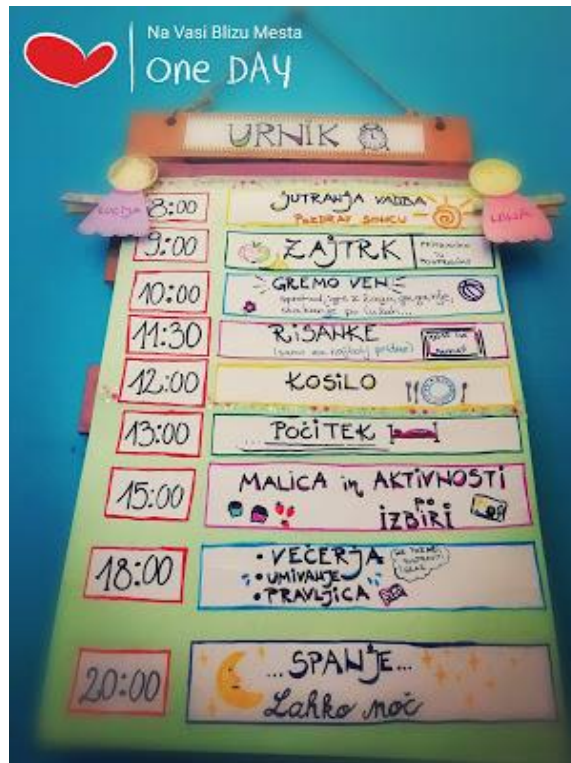 Na Vasi Blizu Mesta
One DAY
URNIK
LUCIJA
8:00
JUTRANJA VADBA
POZDRAV SONCU
9:00
ZAJTRK
10:00
GREMO VEN
11:30
RISANKE
(samo za najbolj pridne)
12:00
KOSILO
13:00
... POČITEK
15:00
MALICA in AKTIVNOSTI
po
IZBIRI
18:00
• VEČERJA
• UMIVANJE
• PRAVLJICA
20:00
...SPANJE...
Lahko noč